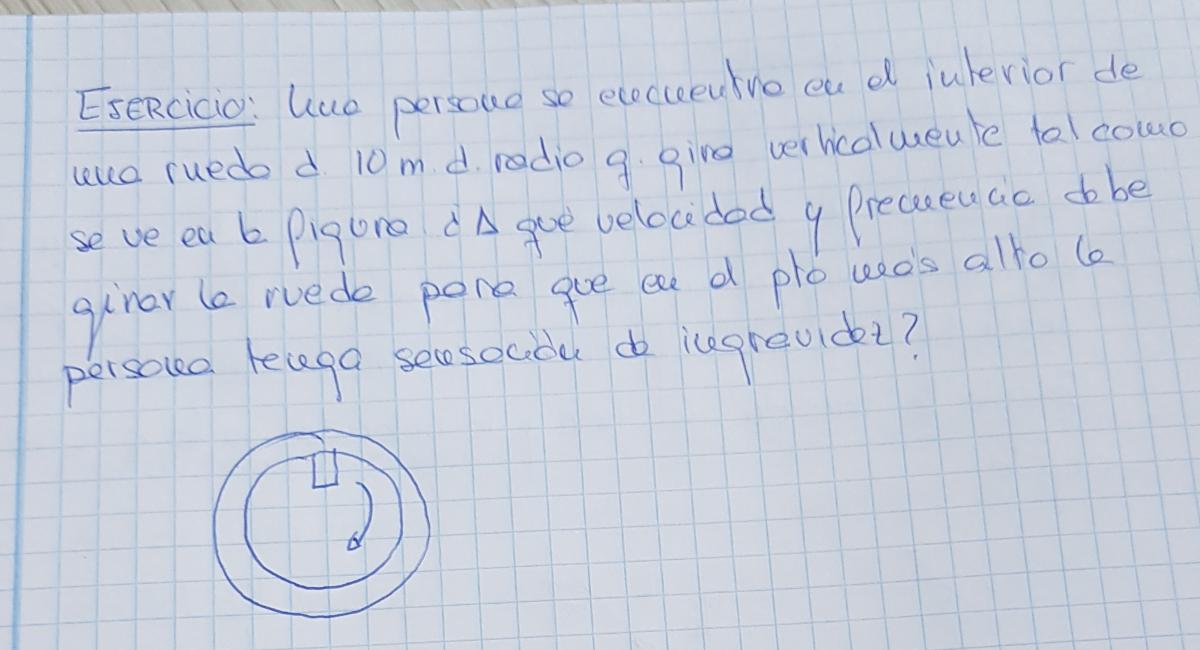 EJERCICIO: Una persona se encuentra en el interior de
una rueda d. 10 m. d. radio q. gira verticalmente tal como
se ve en la figura ¿A qué velocidad y frecuencia debe
girar la rueda para que en el pto más alto la
persona tenga sensación de ingravidez?